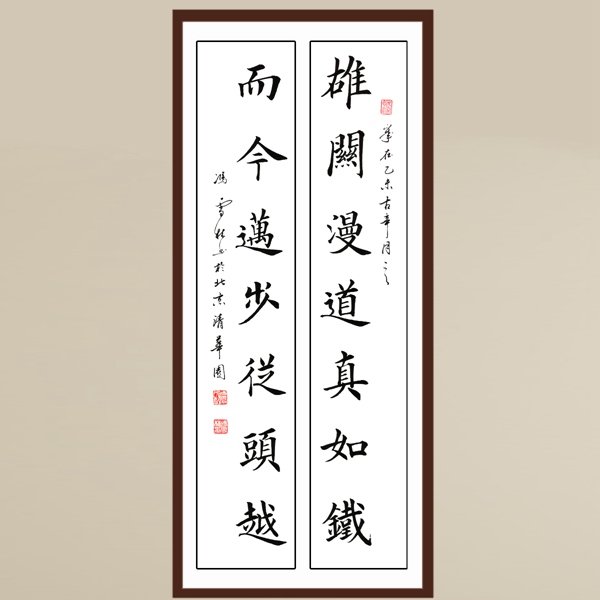 歲在乙未古辛月之
雄關漫道真如鐵
而今邁步從頭越
馮雪林書於北京清華園